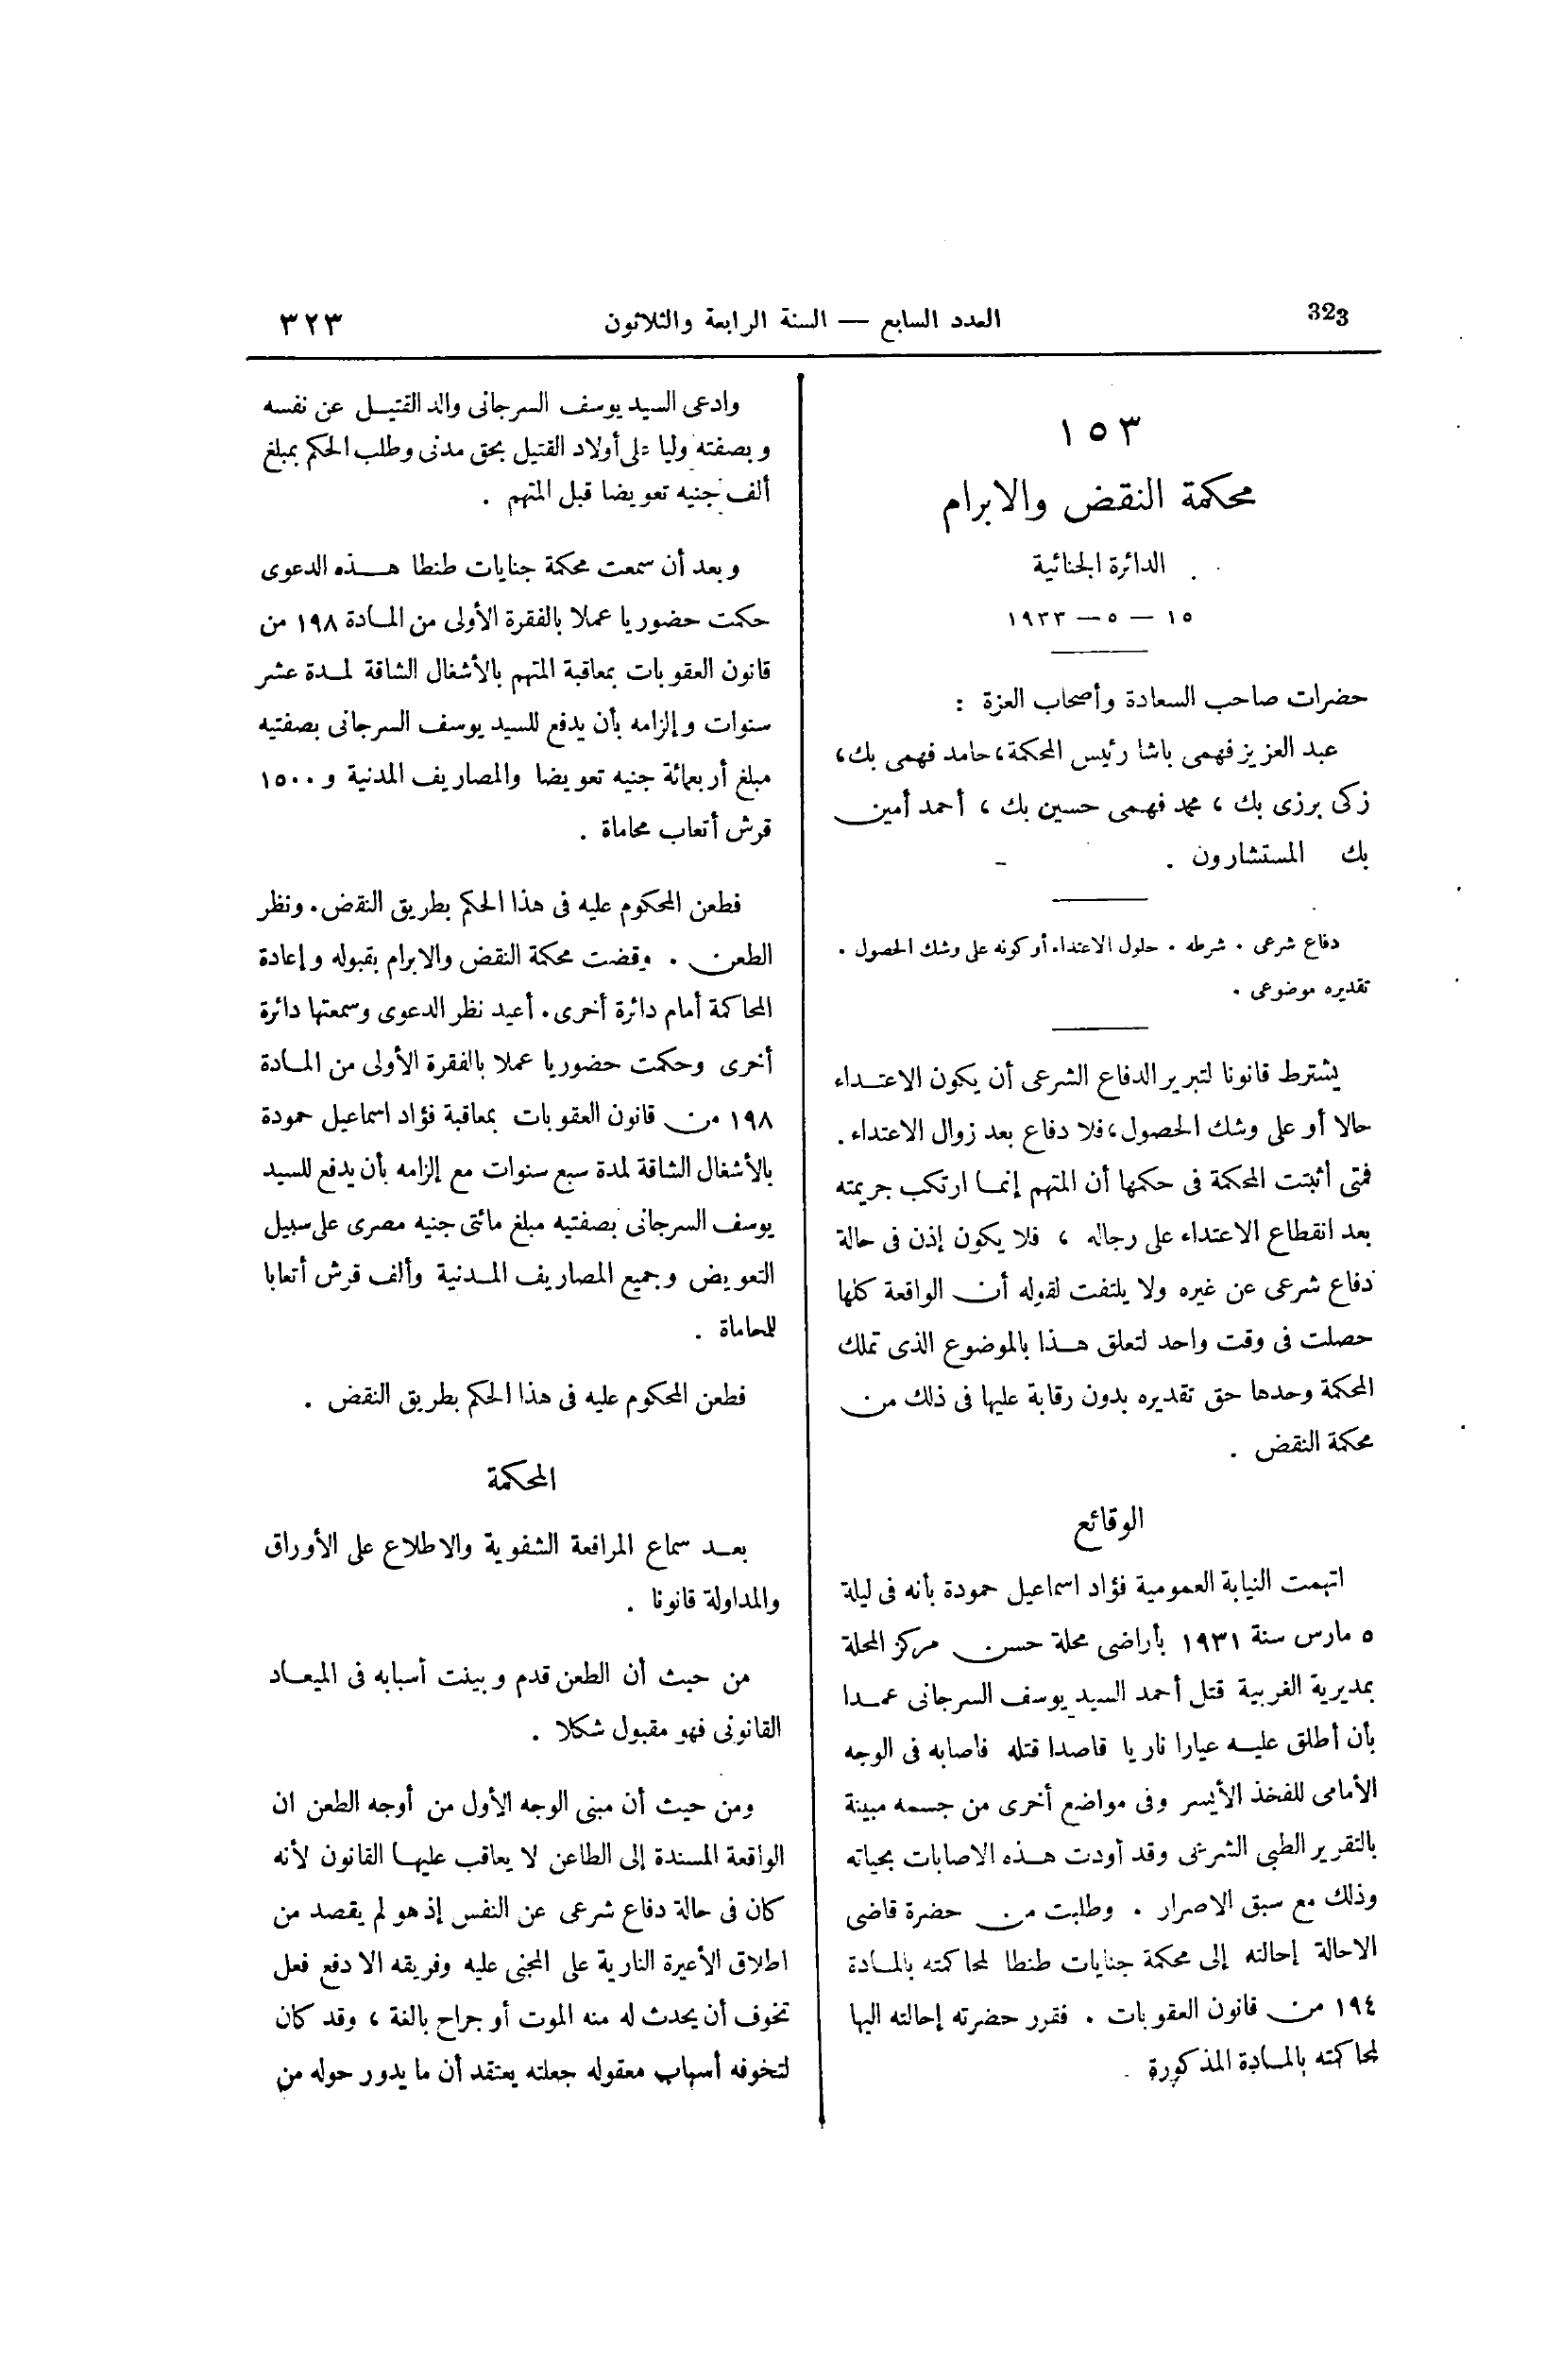 323
العدد السابع — السنة الرابعة والثلاثون
٣٢٣
١٥٣
محكمة النقض والابرام
الدائرة الجنائية
١٥ — ٥ — ١٩٣٣
حضرات صاحب السعادة وأصحاب العزة :
عبد العزيز فهمى باشا رئيس المحكمة، حامد فهمى بك،
زكى برزى بك ، محمد فهمى حسين بك ، أحمد أمين
بك المستشارون .
دفاع شرعى . شرطه . حلول الاعتداء أو كونه على وشك الحصول .
تقديره موضوعى .
يشترط قانونا لتبرير الدفاع الشرعى أن يكون الاعتداء
حالا أو على وشك الحصول، فلا دفاع بعد زوال الاعتداء .
فمتى أثبتت المحكمة فى حكمها أن المتهم إنما ارتكب جريمته
بعد انقطاع الاعتداء على رجاله ، فلا يكون إذن فى حالة
دفاع شرعى عن غيره ولا يلتفت لقوله أن الواقعة كلها
حصلت فى وقت واحد لتعلق هذا بالموضوع الذى تملك
المحكمة وحدها حق تقديره بدون رقابة عليها فى ذلك من
محكمة النقض .
الوقائع
اتهمت النيابة العمومية فؤاد اسماعيل حمودة بأنه فى ليلة
٥ مارس سنة ١٩٣١ بأراضى محلة حسن مركز المحلة
بمديرية الغربية قتل أحمد السيد يوسف السرجانى عمدا
بأن أطلق عليه عيارا ناريا قاصدا قتله فأصابه فى الوجه
الأمامى للفخذ الأيسر وفى مواضع أخرى من جسمه مبينة
بالتقرير الطبى الشرعى وقد أودت هذه الاصابات بحياته
وذلك مع سبق الاصرار . وطلبت من حضرة قاضى
الاحالة إحالته إلى محكمة جنايات طنطا لمحاكمته بالمادة
١٩٤ من قانون العقوبات . فقرر حضرته إحالته اليها
لمحاكمته بالمادة المذكورة .
وادعى السيد يوسف السرجانى والد القتيل عن نفسه
وبصفته وليا على أولاد القتيل بحق مدنى وطلب الحكم بمبلغ
ألف جنيه تعويضا قبل المتهم .
وبعد أن سمعت محكمة جنايات طنطا هذه الدعوى
حكمت حضوريا عملا بالفقرة الأولى من المادة ١٩٨ من
قانون العقوبات بمعاقبة المتهم بالأشغال الشاقة لمدة عشر
سنوات وإلزامه بأن يدفع للسيد يوسف السرجانى بصفتيه
مبلغ أربعمائة جنيه تعويضا والمصاريف المدنية و ١٥٠٠
قرش أتعاب محاماة .
فطعن المحكوم عليه فى هذا الحكم بطريق النقض. ونظر
الطعن . وقضت محكمة النقض والابرام بقبوله وإعادة
المحاكمة أمام دائرة أخرى. أعيد نظر الدعوى وسمعتها دائرة
أخرى وحكمت حضوريا عملا بالفقرة الأولى من المادة
١٩٨ من قانون العقوبات بمعاقبة فؤاد اسماعيل حمودة
بالأشغال الشاقة لمدة سبع سنوات مع إلزامه بأن يدفع للسيد
يوسف السرجانى بصفتيه مبلغ مائتى جنيه مصرى على سبيل
التعويض وجميع المصاريف المدنية وألف قرش أتعابا
للمحاماة .
فطعن المحكوم عليه فى هذا الحكم بطريق النقض .
المحكمة
بعد سماع المرافعة الشفوية والاطلاع على الأوراق
والمداولة قانونا .
من حيث أن الطعن قدم وبينت أسبابه فى الميعاد
القانونى فهو مقبول شكلا .
ومن حيث أن مبنى الوجه الأول من أوجه الطعن ان
الواقعة المسندة إلى الطاعن لا يعاقب عليها القانون لأنه
كان فى حالة دفاع شرعى عن النفس إذ هو لم يقصد من
اطلاق الأعيرة النارية على المجنى عليه وفريقه الا دفع فعل
تخوف أن يحدث له منه الموت أو جراح بالغة ، وقد كان
لتخوفه أسباب معقوله جعلته يعتقد أن ما يدور حوله من